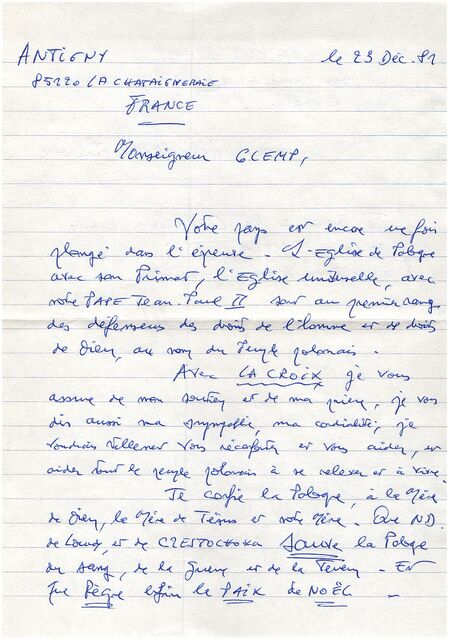 ANTIGNY
le 23 Déc. 81
85120 LA CHATAIGNERAIE
FRANCE
Monseigneur GLEMP,
Votre pays est encore une fois
plongé dans l'épreuve - L'Eglise de Pologne
avec son Primat, l'Eglise universelle, avec
notre PAPE Jean-Paul II sont au premier rang
des défenseurs des droits de l'Homme et des droits
de Dieu, au nom du Peuple polonais.
Avec LA CROIX je vous
assure de mon soutien et de ma prière, je vous
dis aussi ma sympathie, ma cordialité, je
voudrais tellement vous réconforter et vous aider, et
aider tout le peuple polonais à se relever et à vivre.
Je confie la Pologne, à la Mère
de Dieu, la Mère de Jésus et notre Mère. Que ND.
de Lourdes, et de CZESTOCHOWA Sauve la Pologne
du sang, de la guerre et de la Terreur - Et
que Règne enfin la PAIX de NOËL -